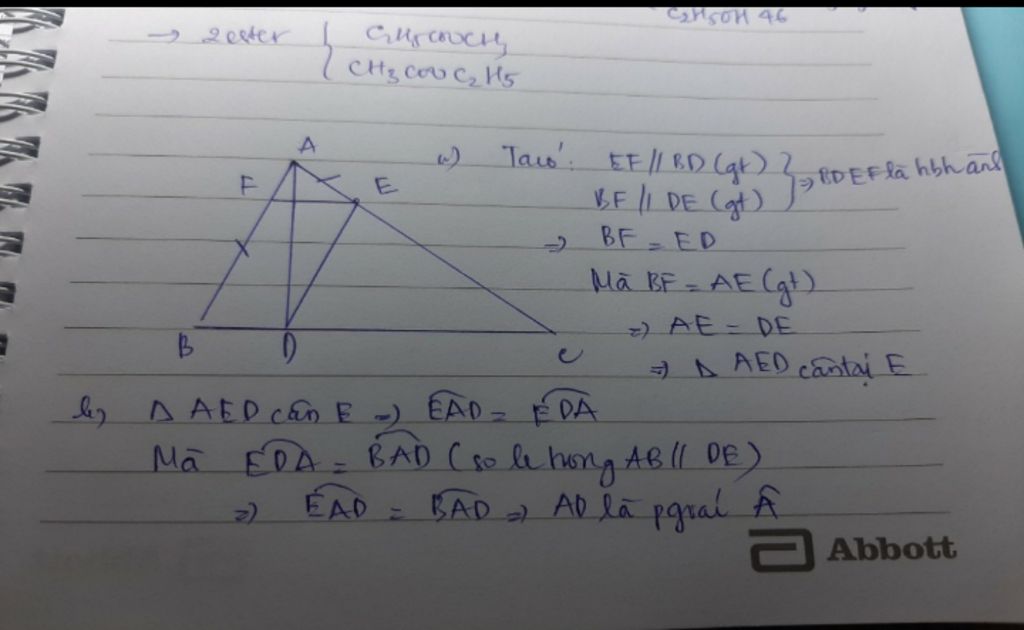 C2H5OH 46
→ 2 ester { C2H5COOCH3
CH3COOC2H5
A
F
E
B
D
C
a) Ta có: EF // BD (gt)
BF // DE (gt)
} ⇒ BDEF là hbh ành
⇒ BF = ED
Mà BF = AE (gt)
⇒ AE = DE
⇒ Δ AED cân tại E
b) Δ AED cân E ⇒ EAD = EDA
Mà EDA = BAD (so le trong AB // DE)
⇒ EAD = BAD ⇒ AD là pgiác Â
Abbott